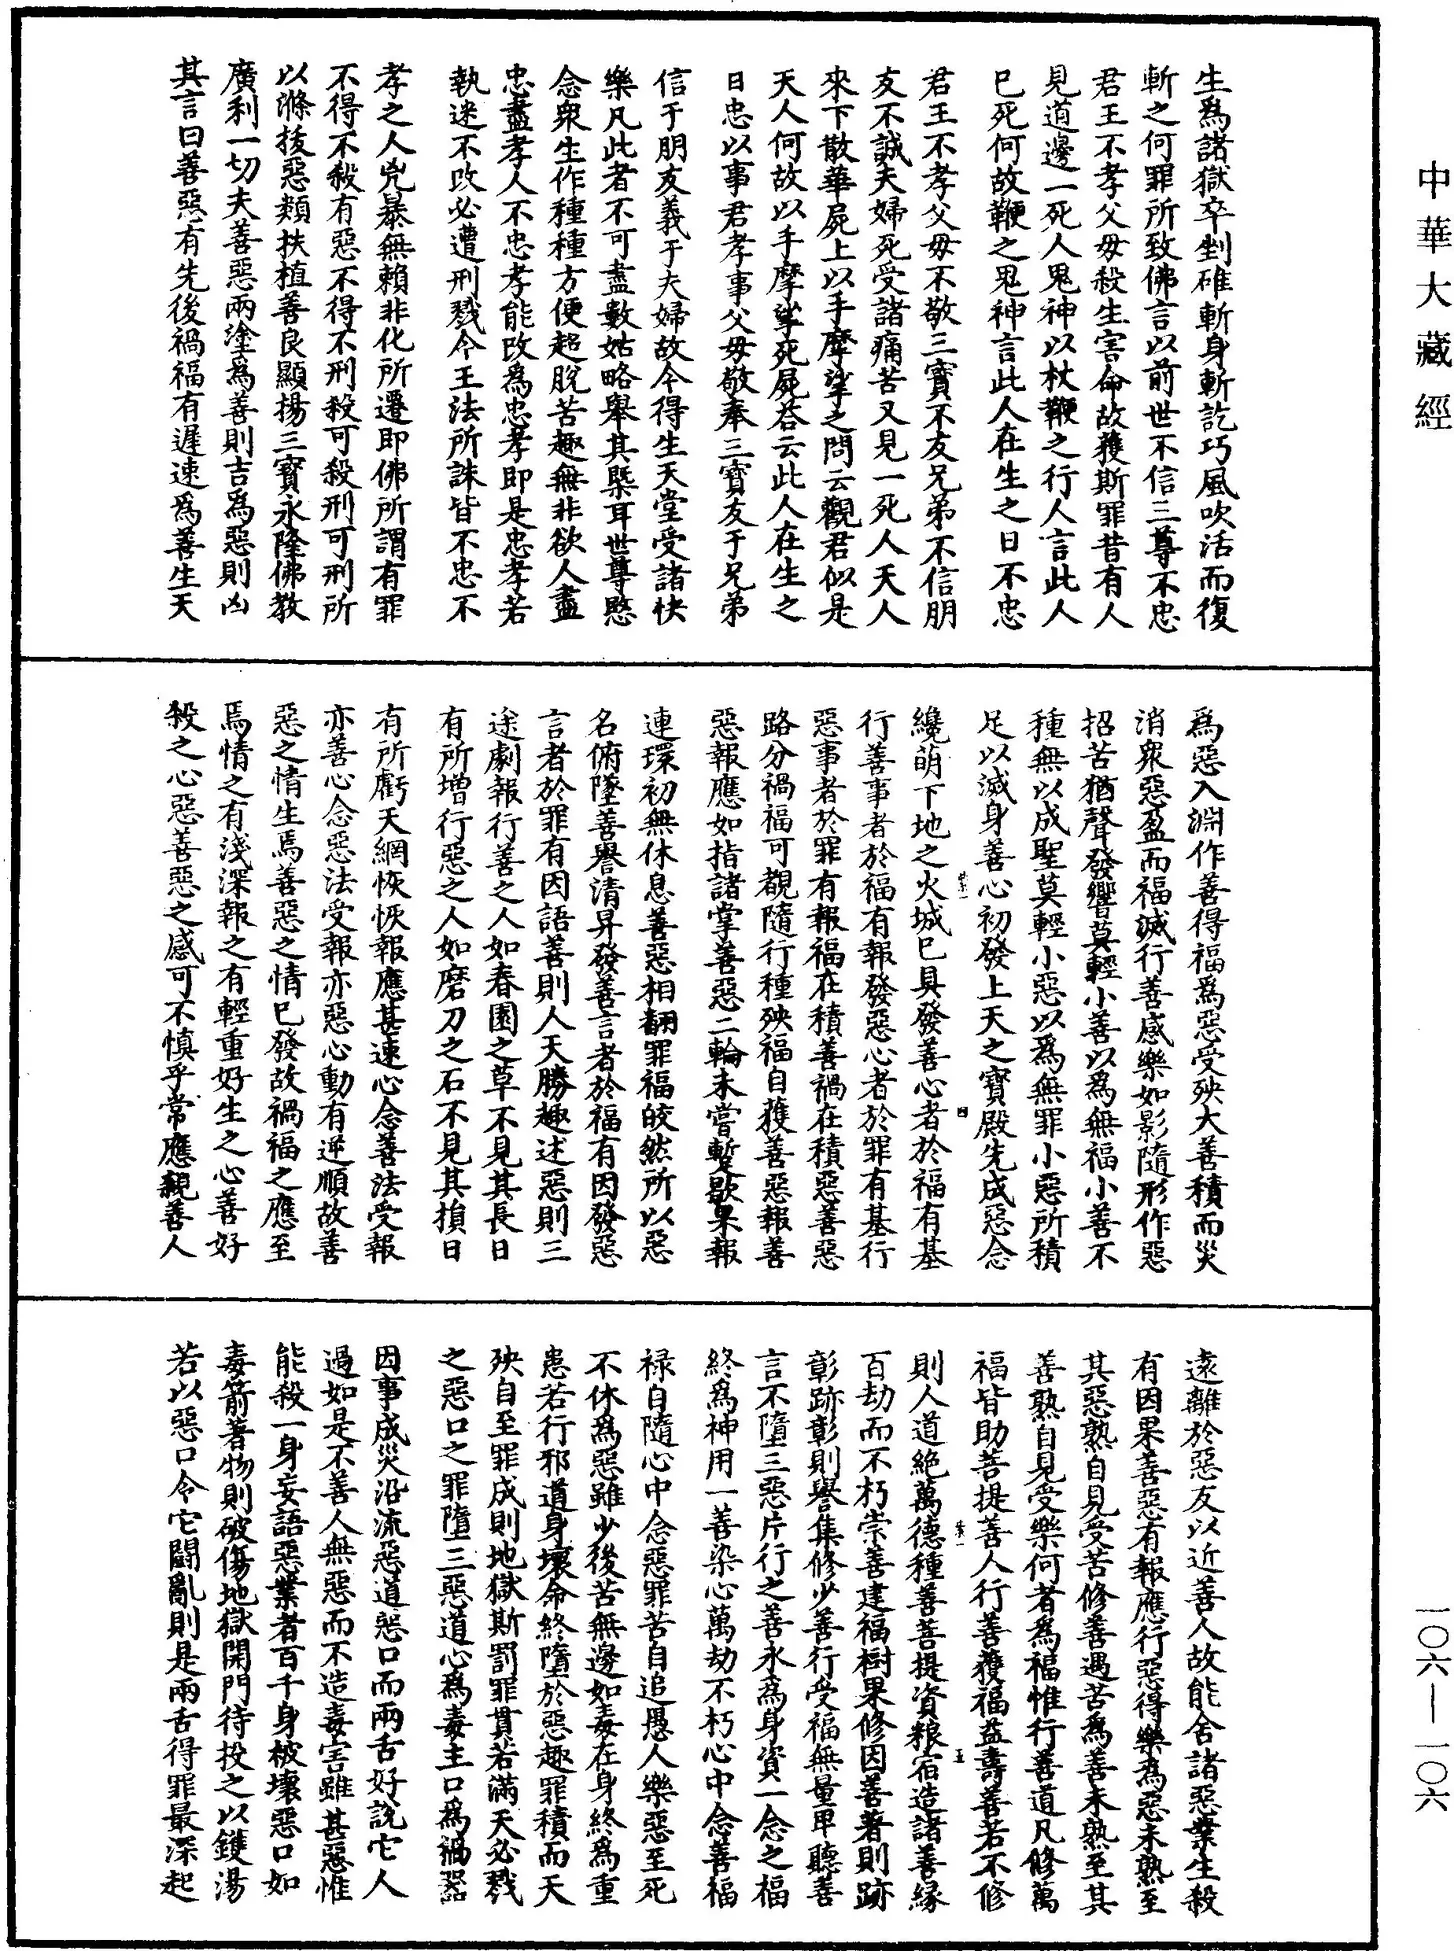 中華大藏經
生為諸獄卒剉碓斬身斬訖巧風吹活而復
斬之何罪所致佛言以前世不信三尊不忠
君王不孝父母殺生害命故獲斯罪昔有人
見道邊一死人鬼神以杖鞭之行人言此人
已死何故鞭之鬼神言此人在生之日不忠
君王不孝父母不敬三寶不友兄弟不信朋
友不誠夫婦死受諸痛苦又見一死人天人
來下散華屍上以手摩挲之問云觀君似是
天人何故以手摩挲死屍荅云此人在生之
日忠以事君孝事父母敬奉三寶友于兄弟
信于朋友義于夫婦故今得生天堂受諸快
樂凡此者不可盡數姑略舉其槩耳世尊愍
念衆生作種種方便超脫苦趣無非欲人盡
忠盡孝人不忠孝能改為忠孝即是忠孝若
執迷不改必遭刑戮今王法所誅皆不忠不
孝之人兇暴無賴非化所遷即佛所謂有罪
不得不殺有惡不得不刑殺可殺刑可刑所
以滌拔惡類扶植善良顯揚三寶永隆佛教
廣利一切夫善惡兩塗為善則吉為惡則凶
其言曰善惡有先後禍福有遲速為善生天
為惡入淵作善得福為惡受殃大善積而災
消衆惡盈而福滅行善感樂如影隨形作惡
招苦猶聲發響莫輕小善以為無福小善不
種無以成聖莫輕小惡以為無罪小惡所積
足以滅身善心初發上天之寶殿先成惡念
纔萌下地之火城已具發善心者於福有基
行善事者於福有報發惡心者於罪有基行
惡事者於罪有報福在積善禍在積惡善惡
路分禍福可覩隨行種殃福自獲善惡報善
惡報應如指諸掌善惡二輪未嘗暫歇果報
連環初無休息善惡相翻罪福皎然所以惡
名俯墜善譽清昇發善言者於福有因發惡
言者於罪有因語善則人天勝趣述惡則三
途劇報行善之人如春園之草不見其長日
有所增行惡之人如磨刀之石不見其損日
有所虧天網恢恢報應甚速心念善法受報
亦善心念惡法受報亦惡心動有逆順故善
惡之情生焉善惡之情已發故禍福之應至
焉情之有淺深報之有輕重好生之心善好
殺之心惡善惡之感可不慎乎常應親善人
遠離於惡友以近善人故能舍諸惡業生殺
有因果善惡有報應行惡得樂為惡未熟至
其惡熟自見受苦修善遇苦為善未熟至其
善熟自見受樂何者為福惟行善道凡修萬
福皆助菩提善人行善獲福益壽善若不修
則人道絕萬德種善菩提資粮宿造諸善緣
百劫而不朽崇善建福樹果修因善著則跡
彰跡彰則譽集修少善行受福無量甲聽善
言不墮三惡片行之善永為身資一念之福
終為神用一善染心萬劫不朽心中念善福
祿自隨心中念惡罪苦自追愚人樂惡至死
不休為惡雖少後苦無邊如毒在身終為重
患若行邪道身壞命終墮於惡趣罪積而天
殃自至罪成則地獄斯罰罪貫若滿天必戮
之惡口之罪墮三惡道心為毒主口為禍器
因事成災沿流惡道惡口而兩舌好說它人
過如是不善人無惡而不造毒害雖甚惡惟
能殺一身妄語惡業者百千身被壞惡口如
毒箭著物則破傷地獄開門待投之以鑊湯
若以惡口令它鬪亂則是兩舌得罪最深起
一〇六—一〇六